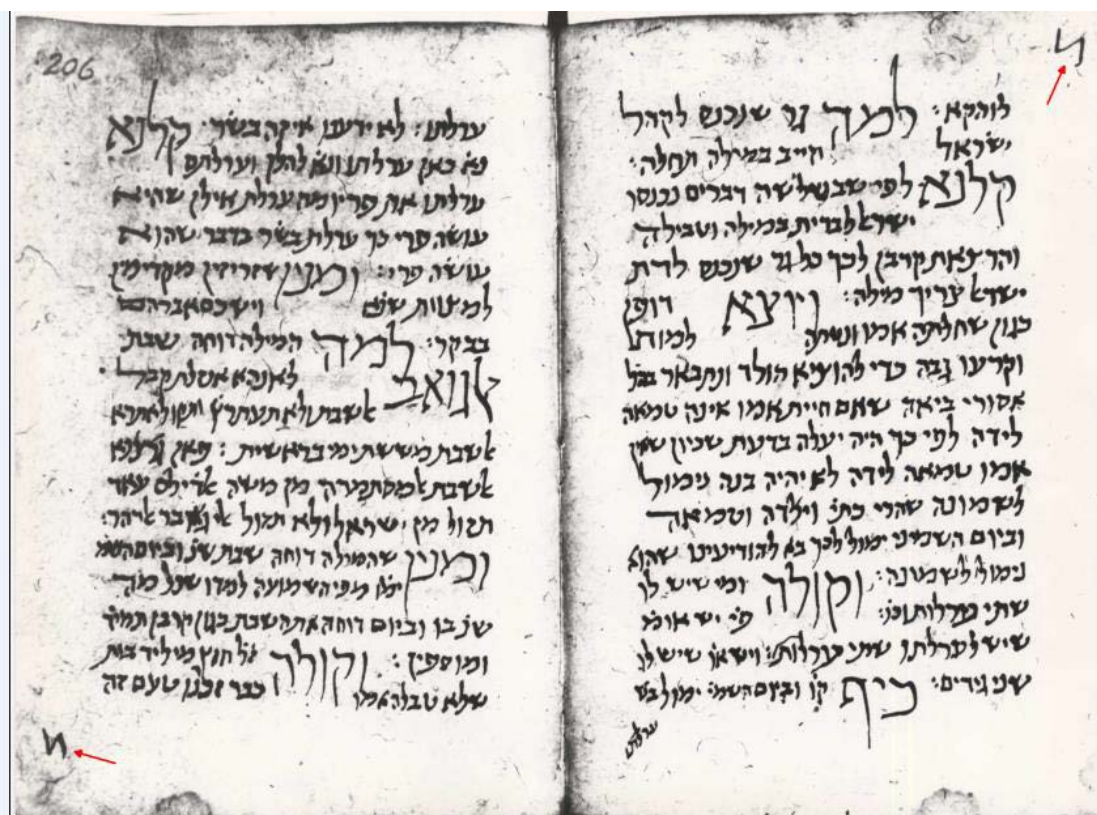 לוהקא: למה גר שנכנס לקהל
ישראל חייב במילה תחלה:
קלנא לפי שבשלשה דברים נכנסו
ישראל לברית במילה וטבילה
והרצאת קרבן לכך כל גר שנכנס לדת
ישראל צריך מילה: ויוצא דופן
כגון שחלתה אמו ונטתה למות
וקרעו גבה כדי להוציא הולד ונתבאר בכל
אסורי ביאה שאם חיית אמו אינה טמאה
לידה לפי כך היה יעלה בדעת שכיון שאין
אמו טמאה לידה לא יהיה בנה נימול
לשמונה שהרי כתי וילדה וטמאה
וביום השמיני ימול לכך בא להודיעינו שהוא
נימול לשמונה: וקולה ומי שיש לו
שתי ערלות וכו: פי יש אומ
שיש לערלתו שתי ערלות: ויש או שיש לו
שני גידים: כיף קו וביום השמי ימול בש
ערלתו
206
ערלתו: לא ידענו איזה בשר: קלנא
נא כאן ערלתו ונא להלן וערלתם
ערלתו את פריו מה ערלת אילן שהיא
עושה פרי כך ערלת בשר בדבר שהוא
עושה פרי: ומנין שזריזין מקדימין
למצוות שנא וישכם אברהם
בבקר: למה המילה דוחה שבת
אלגואב לאנהא
אלשבת ולא
אלשבת מששת ימי בראשית: פאן קלנא
אלשבת מן משה
תקול מן ישראל ולא תקול
ומנין שהמילה דוחה שבת שנ וביום השמ
ימו מפי השמועה למדו שכל מה
שנ בו וביום דוחה את השבת כגון קרבן תמיד
ומוספין: וקולה חוץ מיליד בית
שלא טבלה אמו כבר זכרנו טעם זה